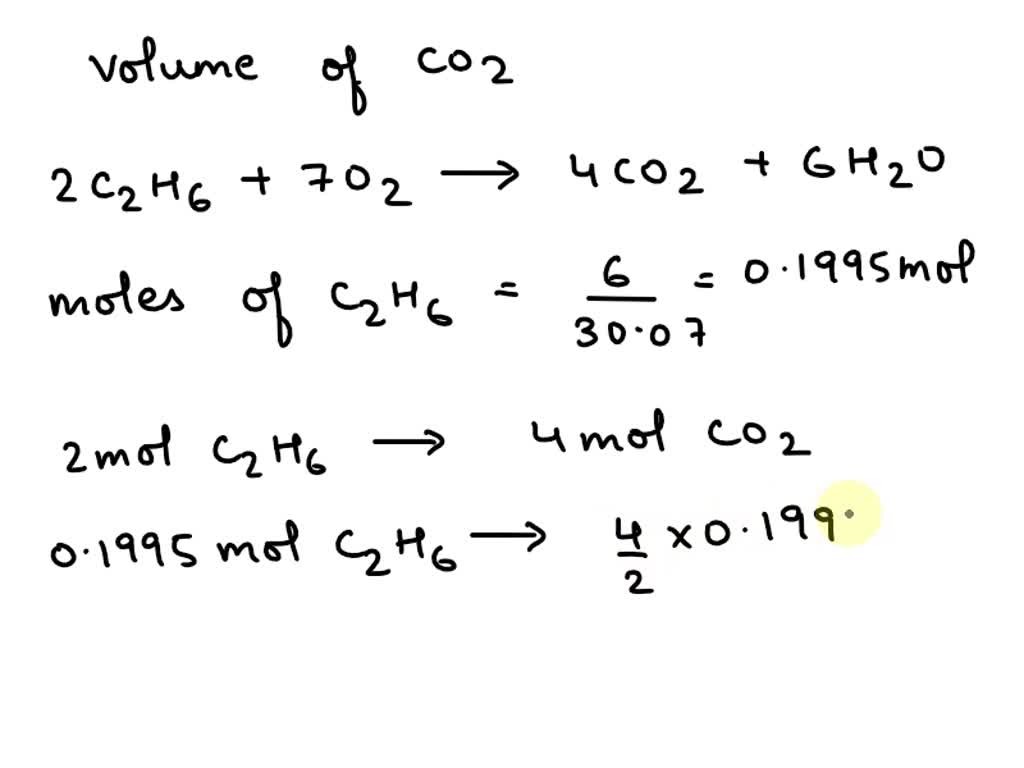 volume of CO2
2C2H6 + 7O2 → 4CO2 + 6H2O
moles of C2H6 = 6/30.07 = 0.1995 mol
2 mol C2H6 → 4 mol CO2
0.1995 mol C2H6 → 4/2 × 0.199